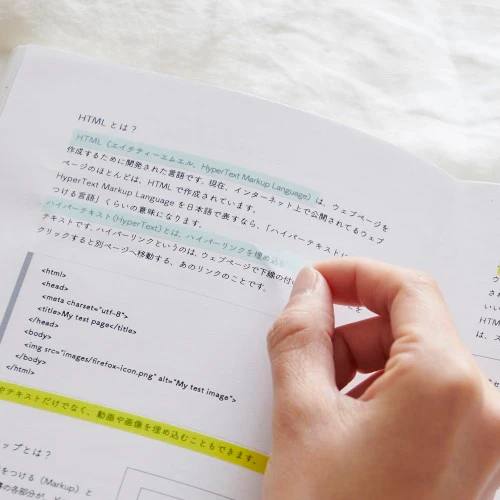 HTML とは？
HTML（エイチティーエムエル、HyperText Markup Language）は、ウェブページを
作成するために開発された言語です。現在、インターネット上で公開されてるウェブ
ページのほとんどは、HTML で作成されています。
HyperText Markup Language を日本語で表すなら、「ハイパーテキストに
つける言語」くらいの意味になります。
ハイパーテキスト(HyperText)とは、ハイパーリンクを埋め込む
テキストです。ハイパーリンクというのは、ウェブページで下線の付い
クリックすると別ページへ移動する、あのリンクのことです。
<html>
<head>
<meta charset="utf-8">
<title>My test page</title>
</head>
<body>
<img src="images/firefox-icon.png" alt="My test image">
</body>
</html>
やテキストだけでなく、動画や画像を埋め込むこともできます。
ップとは？
をつける（Markup）と
の各部分が、
HTM
は、ス